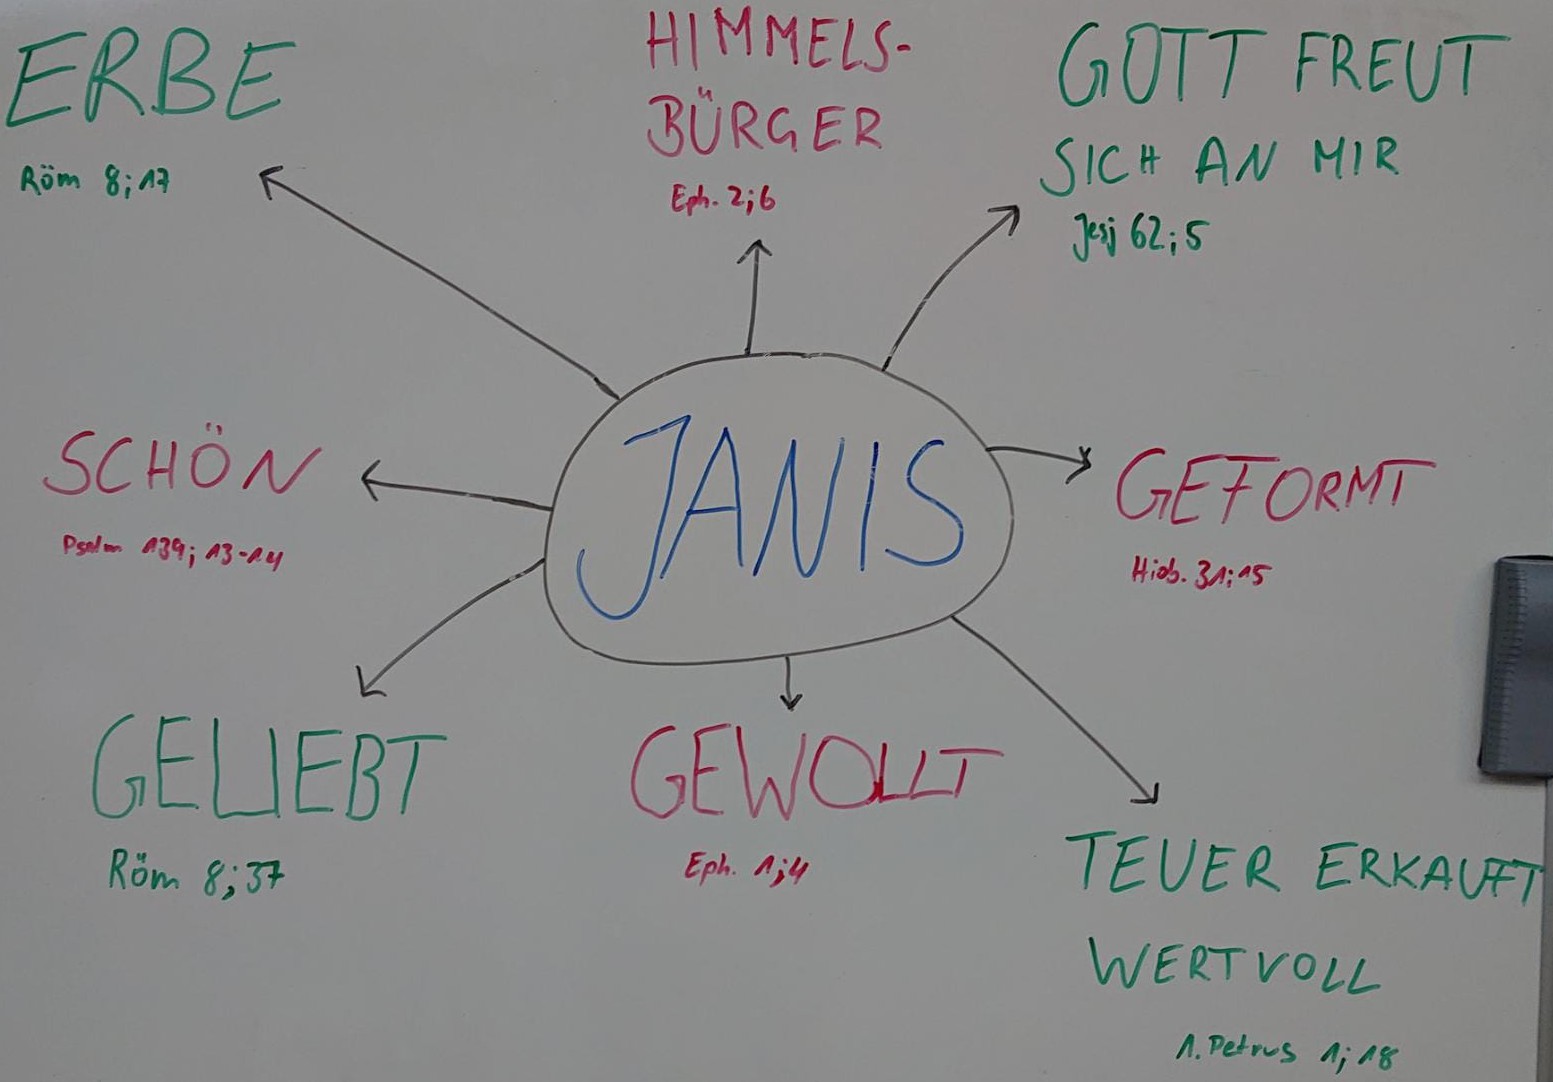 ERBE
Röm 8;17
HIMMELS-
BÜRGER
Eph. 2;6
GOTT FREUT
SICH AN MIR
Jesj 62;5
SCHÖN
Psalm 139; 13-14
JANIS
GEFORMT
Hiob. 31;15
GELIEBT
Röm 8;37
GEWOLLT
Eph. 1;4
TEUER ERKAUFT
WERTVOLL
1. Petrus 1; 18